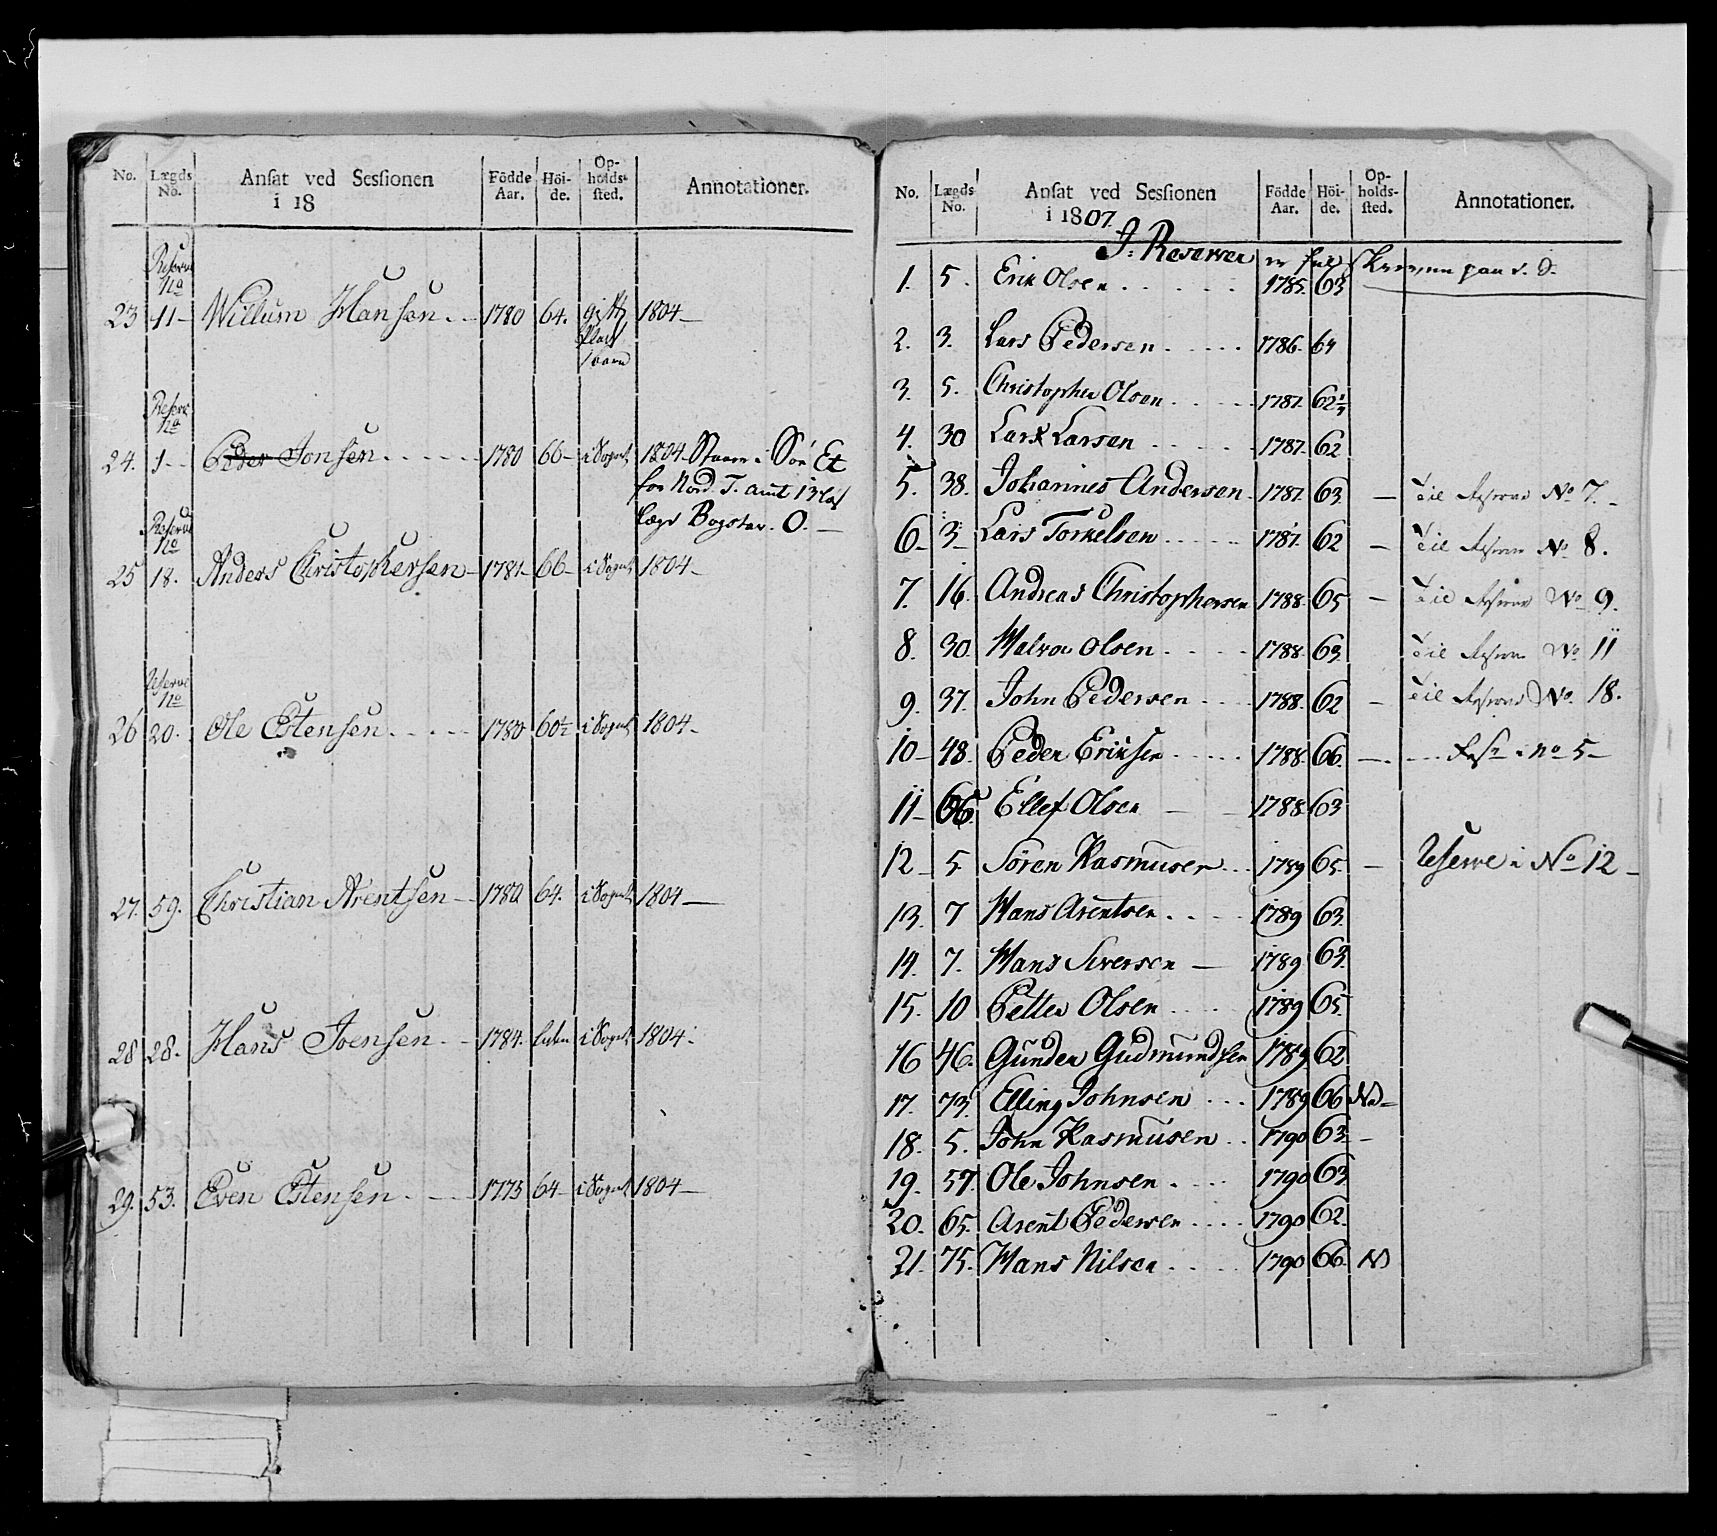 No. Lægds No. Ansat ved Sessionen i 18 Födde Aar. Höi-de. Op-holds-sted. Annotationer.
Reserve No
23 11 Willum Hansen 1780 64. gift 1804
1 barn
Reserve No
24. 1 Peder Jonsen 1780 66 i Sognet 1804 Staaer i
for Nord. T. amt
lægd Bogstav. O.
Reserve No
25 18. Anders Christophersen 1781 66 i Sognet 1804
Reserve No
26 20. Ole Estensen 1780 60½ i Sognet 1804
27. 59. Christian Arentsen 1780 64. i Sognet 1804
28 28. Hans Joensen 1784. i Sognet 1804
29. 53. Even Estensen 1775 64 i Sognet 1804
No. Lægds No. Ansat ved Sessionen i 1807. Födde Aar. Höi-de. Op-holds-sted. Annotationer.
I Reserven er
1. 5. Erik Olsen 1785. 63
2. 3. Lars Pedersen 1786. 64
3. 5. Christopher Olsen 1787. 62½
4. 30 Lars Larsen 1787. 62
5. 38. Johannes Andersen 1787. 63 Til Reserve No 7.
6 3 Lars Torkelsen 1787. 62 Til Reserve No 8.
7. 16. Andreas Christophersen 1788. 65 Til Reserve No 9.
8. 30. Halvor Olsen 1788. 63 Til Reserve No 11
9. 37. John Pedersen 1788. 62 Til Reserve No. 18.
10 48. Peder Eriksen 1788. 66. no 5
11 66. Ellef Olsen 1788. 63
12 5 Sören Rasmusen 1789 65. Reserve i No 12
13. 7 Hans Arentsen 1789 63.
14. 7. Hans Siversen 1789 63.
15. 10 Petter Olsen 1789 65.
16 46. Gunder Gudmundsen 1789 62
17. 73. Elling Johnsen 1789 66
18. 5. John Rasmusen 1790 63
19. 57. Ole Johnsen 1790 63
20. 65. Arent Pedersen 1790 62.
21. 75. Hans Nilsen 1790 66.